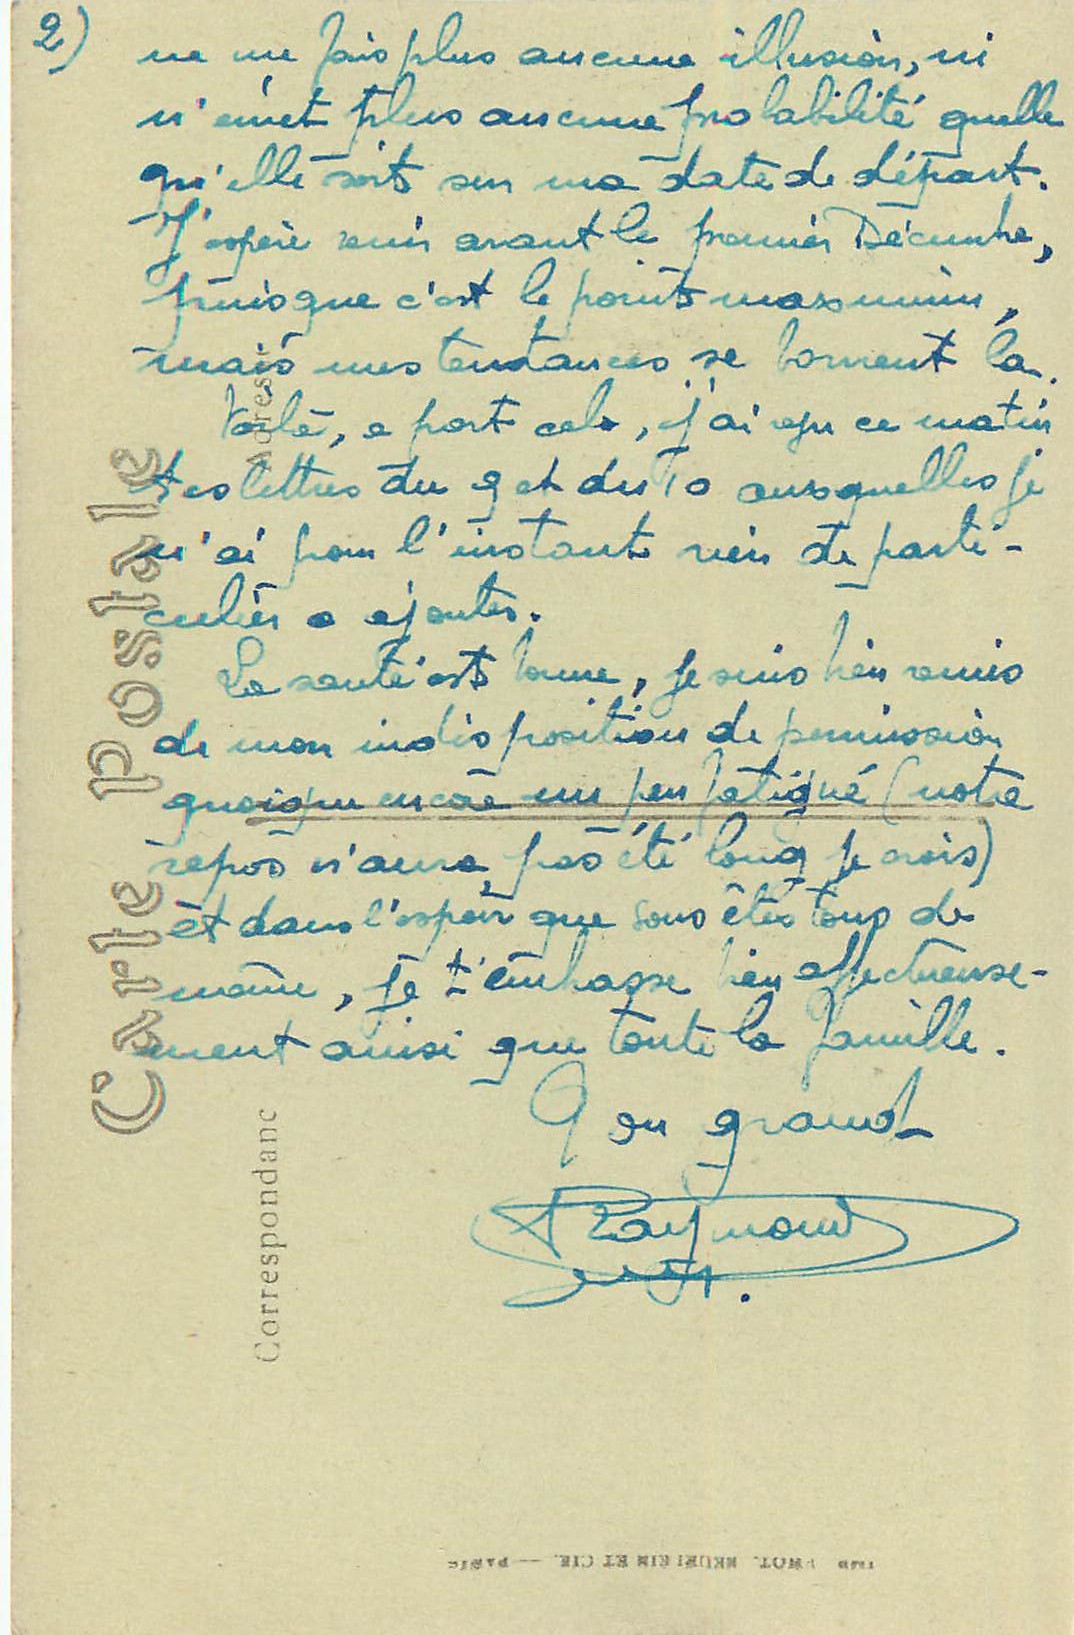 2)
ne me fais plus aucune illusion, ni
n'émet plus aucune probabilité quelle
qu'elle soit sur ma date de départ.
J'espère venir avant le premier Décembre,
puisque c'est le point maximum,
mais mes tendances se bornent la.
Voilà, a part cela, j'ai reçu ce matin
tes lettres du 9 et du 10 auxquelles je
n'ai pour l'instant rien de parti-
culier a ajouter.
La santé est bonne, je suis bien remis
de mon indisposition de permission
quoique encore un peu fatigué (notre
repos n'aura pas été long je crois)
et dans l'espoir que vous êtes tous de
même, je t'embrasse bien affectueuse-
ment ainsi que toute la famille.
Ton grand
Raymond
Carte postale
Correspondanc
Adress
PHOT. NEURDEIN ET CIE. — PARIS